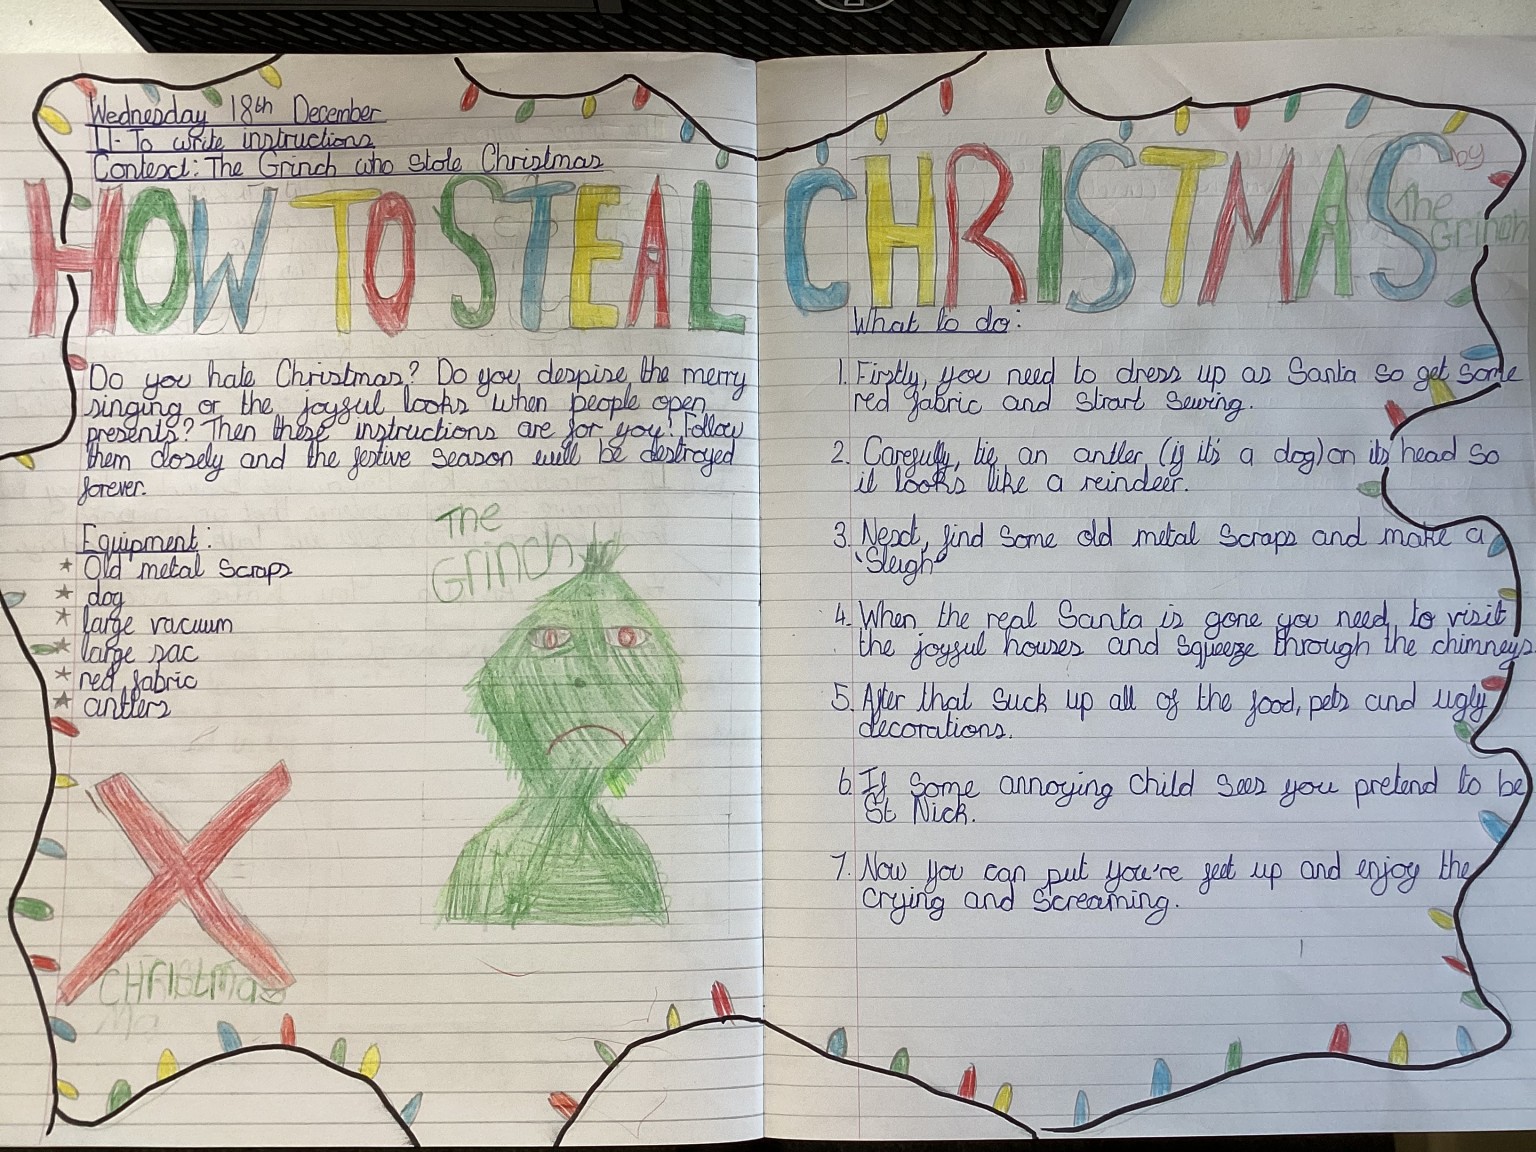 Wednesday 18th December
LI- To write instructions
Context: The Grinch who stole Christmas
HOW TO STEAL CHRISTMAS
by
The
Grinch
Do you hate Christmas? Do you despise the merry
singing or the joyful looks when people open
presents? Then these instructions are for you! Follow
them closely and the festive season will be destroyed
forever.
Equipment:
* Old metal scraps
* dog
* large vacuum
* large sac
* red fabric
* antlers
The
Grinch
CHristmas
What to do:
1. Firstly, you need to dress up as Santa so get some
red fabric and start sewing.
2. Carefully, tie an antler (if it's a dog) on its head so
it looks like a reindeer.
3. Next, find some old metal scraps and make a
'Sleigh'
4. When the real Santa is gone you need to visit
the joyful houses and squeeze through the chimneys.
5. After that suck up all of the food, pets and ugly
decorations.
6. If some annoying child sees you pretend to be
St Nick.
7. Now you can put you're feet up and enjoy the
crying and screaming.